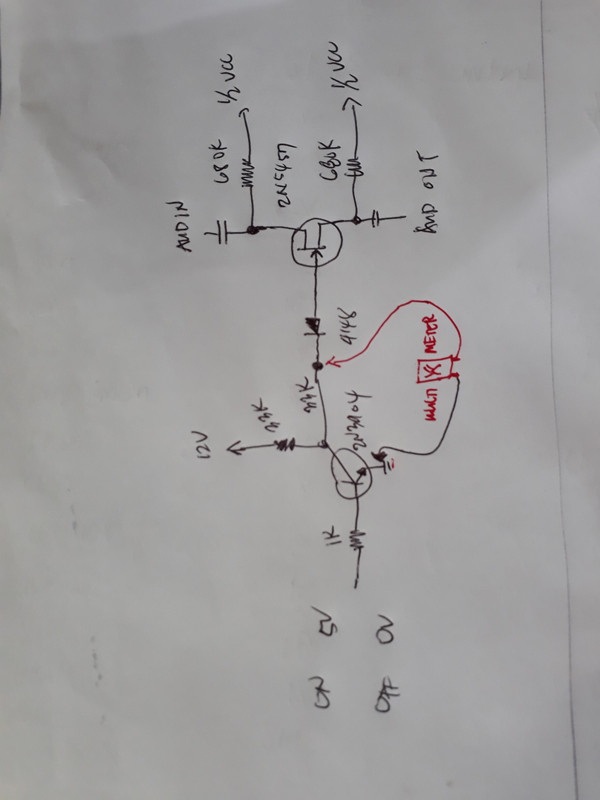 AUD IN
12V
680K
½ VCC
2N5457
ON 5V
1K
680K
½ VCC
2N3904
OFF 0V
AUD OUT
MULTI METER